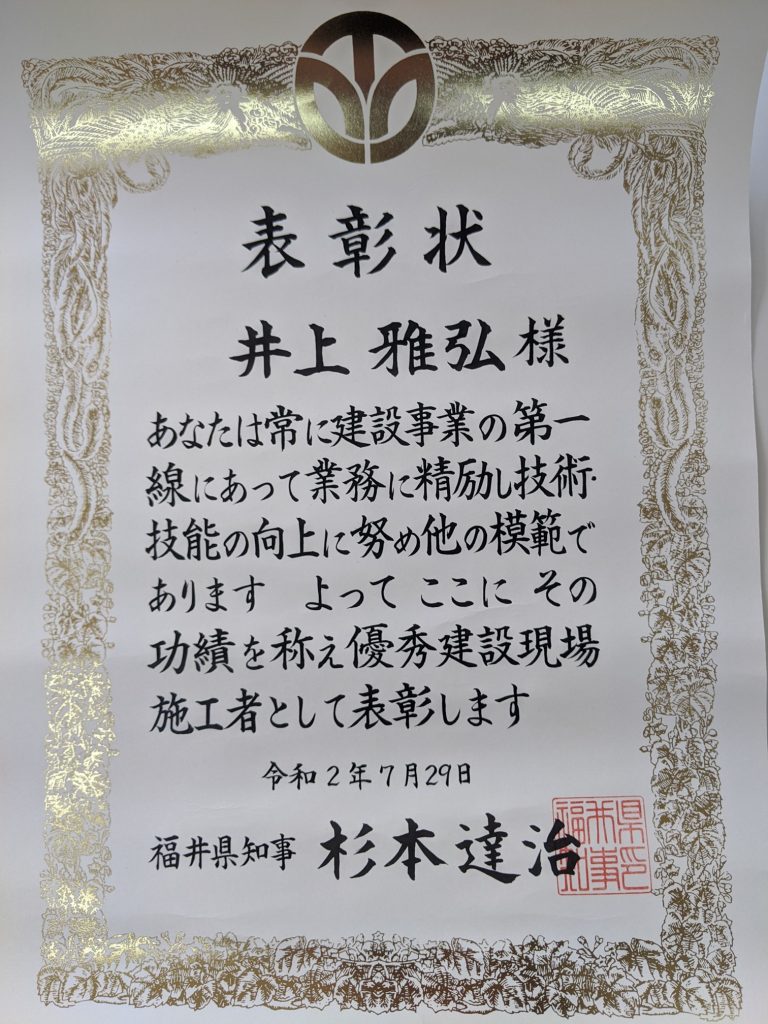 表彰状
井上雅弘様
あなたは常に建設事業の第一
線にあって業務に精励し技術・
技能の向上に努め他の模範で
あります　よって ここに その
功績を称え優秀建設現場
施工者として表彰します
令和2年7月29日
福井県知事 杉本達治
福井県知事印